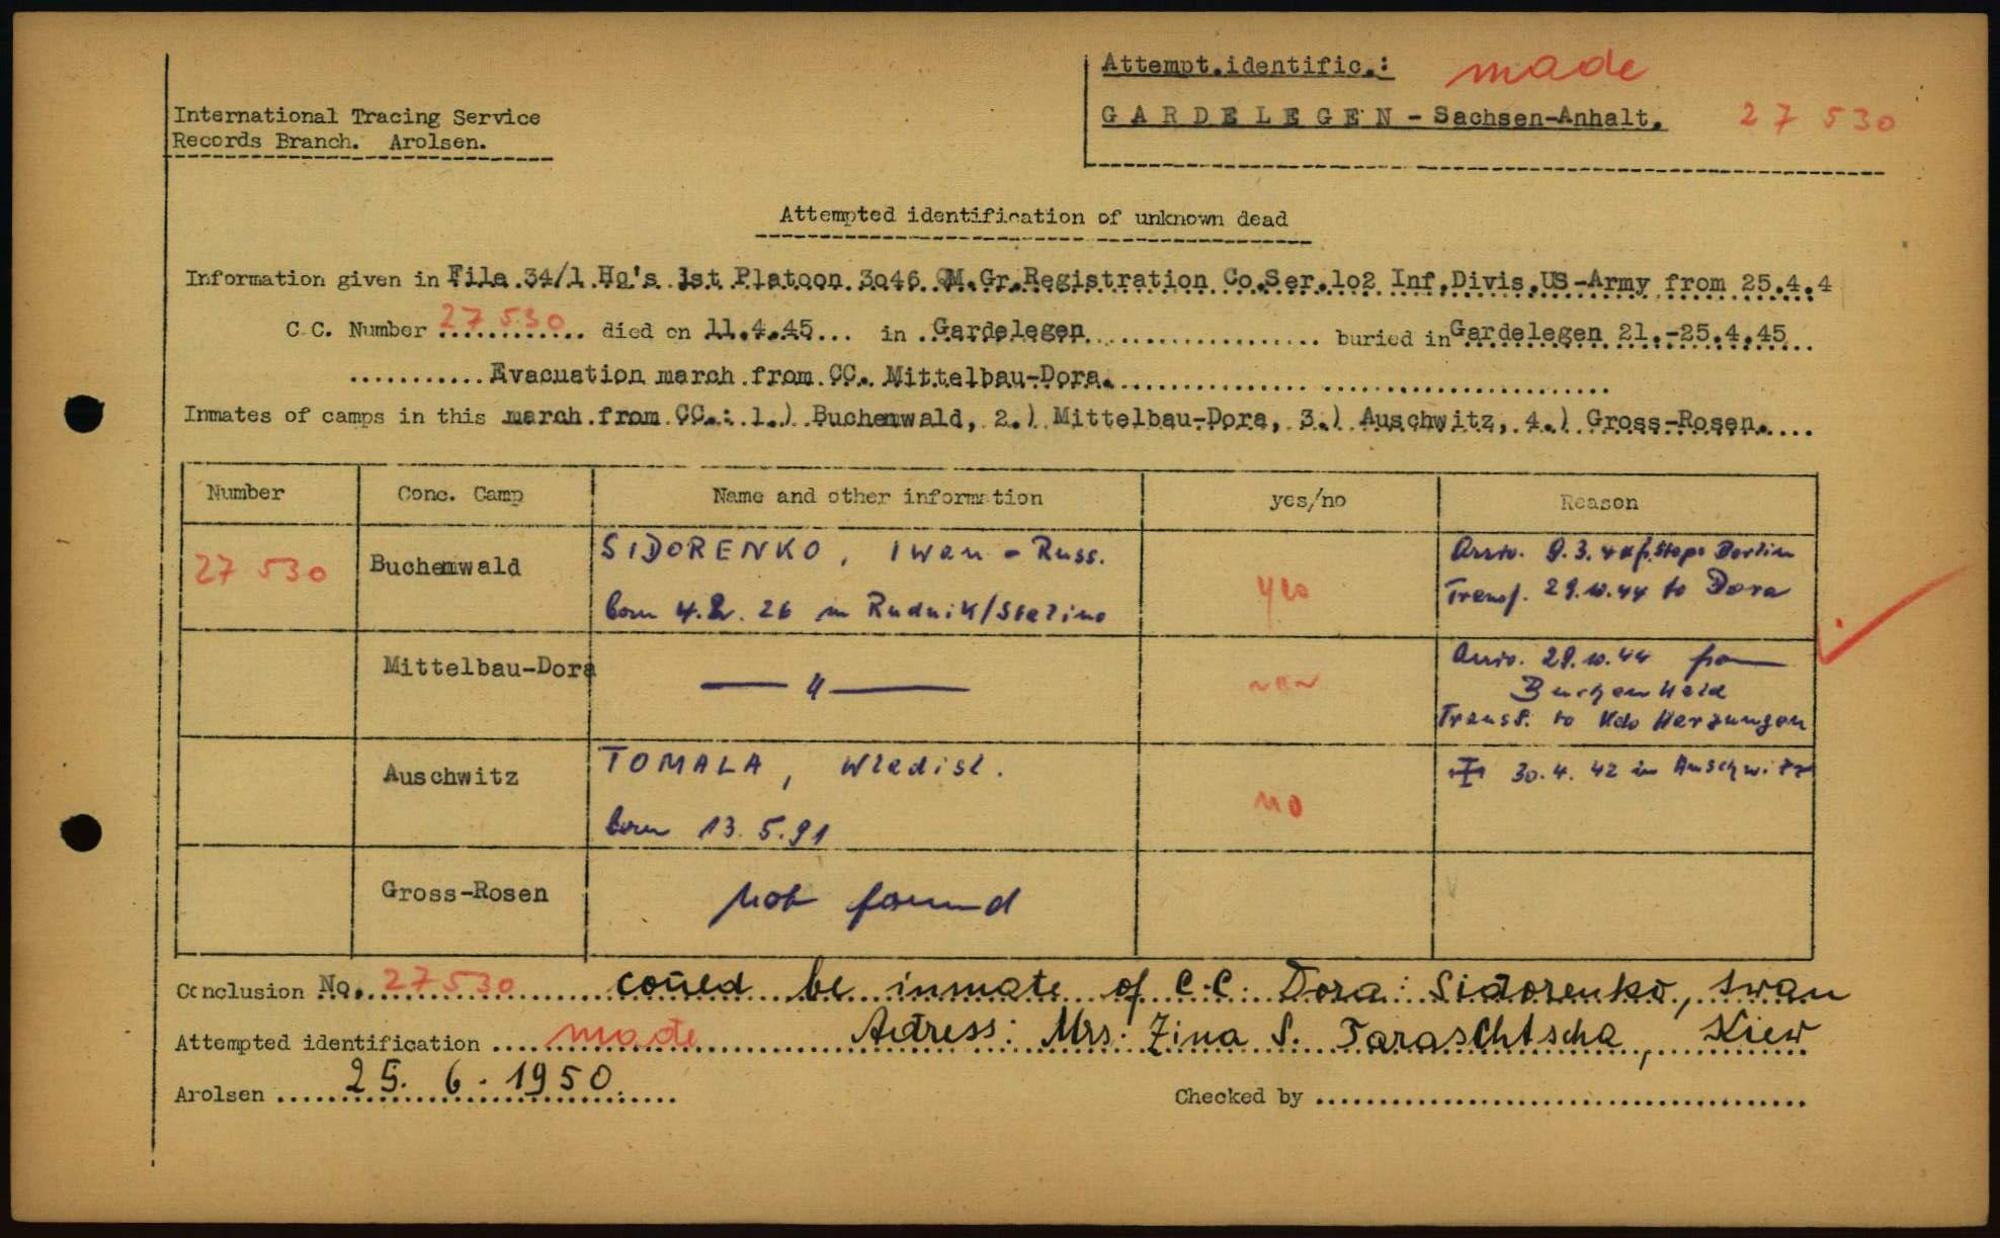 Attempt.identific.: made
GARDELEGEN - Sachsen-Anhalt. 27 530
International Tracing Service
Records Branch. Arolsen.
Attempted identification of unknown dead
Information given in File 34/1 Hq's 1st Platoon 3o46 QM.Gr.Registration Co.Ser.1o2 Inf.Divis.US-Army from 25.4.4
C.C. Number 27530 died on 11.4.45... in .Gardelegen buried in Gardelegen 21.-25.4.45
Evacuation march from CC. Mittelbau-Dora.
Inmates of camps in this march from CC.: 1.) Buchenwald, 2.) Mittelbau-Dora, 3.) Auschwitz, 4.) Gross-Rosen.
Number Conc. Camp Name and other information yes/no Reason
27 530 Buchenwald SIDORENKO, Iwan - Russ. yes Arriv. 9.3.44 Berlin
born 4. 26 in Rudnik/Stalino Transf. 29.10.44 to Dora
Mittelbau-Dora — " — Arriv. 29.10.44 from
Buchenwald
Transf. to Kdo Harzungen
Auschwitz TOMALA, Wladisl. no 30.4.42 in Auschwitz
born 13.5.91
Gross-Rosen not found
Conclusion No. 27530 could be inmate of C.C. Dora: Sidorenko, Iwan
Attempted identification made Adress: Mrs. Zina S. Taraschtscha, Kiew
Arolsen 25. 6. 1950. Checked by